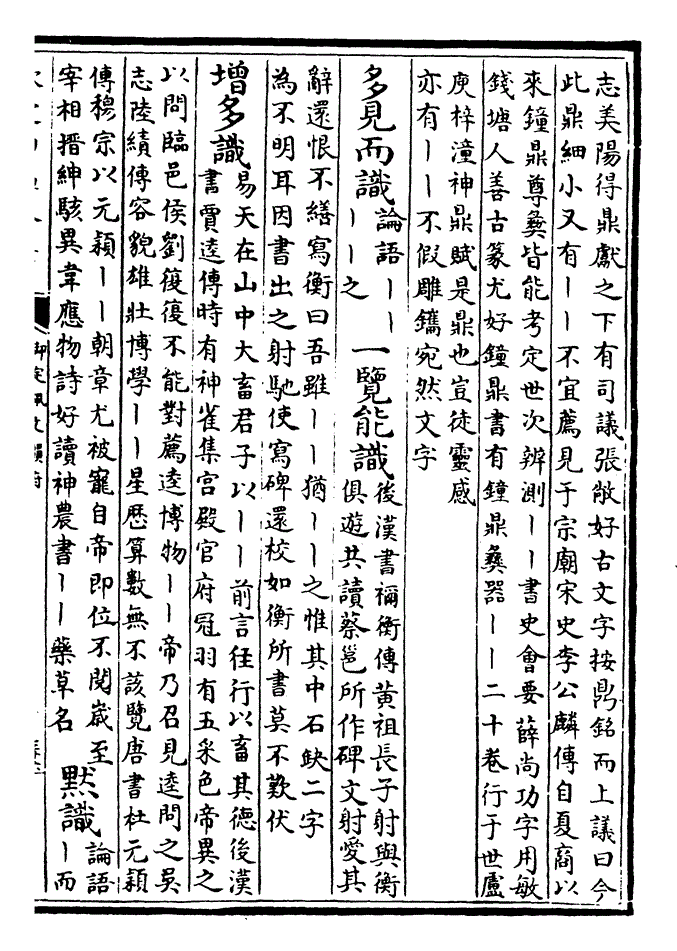 志美陽得鼎獻之下有司議張敞好古文字按鼎銘而上議曰今
此鼎細小又有丨丨不宜薦見于宗廟宋史李公麟傳自夏商以
來鐘鼎尊彝皆能考定世次辨測丨丨書史會要薛尚功字用敏
錢塘人善古篆尤好鐘鼎書有鐘鼎彝器丨丨二十卷行于世盧
庾梓潼神鼎賦是鼎也豈徒靈感
亦有丨丨不假雕鐫宛然文字
多見而識
論語丨丨
丨丨之
一覽能識
後漢書禰衡傳黃祖長子射與衡
俱遊共讀蔡邕所作碑文射愛其
辭還恨不繕寫衡曰吾雖丨丨猶丨丨之惟其中石缺二字
為不明耳因書出之射馳使寫碑還校如衡所書莫不歎伏
增多識
易天在山中大畜君子以丨丨前言往行以畜其德後漢
書賈逵傳時有神雀集宮殿官府冠羽有五采色帝異之
以問臨邑侯劉復復不能對薦逵博物丨丨帝乃召見逵問之吳
志陸績傳容貌雄壯博學丨丨星歷算數無不該覽唐書杜元穎
傳穆宗以元穎丨丨朝章尤被寵自帝即位不閱歲至
宰相搢紳駭異韋應物詩好讀神農書丨丨藥草名
默識
論語
丨而
御定佩文韻府